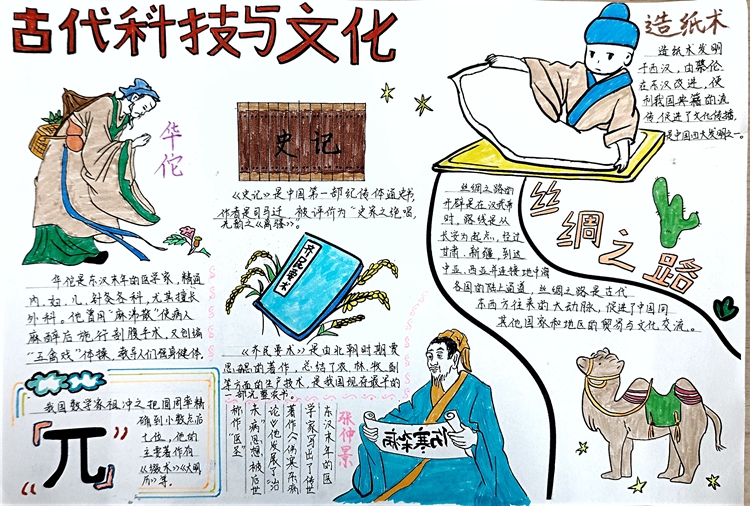 古代科技与文化
华佗
华佗是东汉末年的医学家,精通
内、妇、儿、针灸各科,尤其擅长
外科。他曾用“麻沸散”使病人
麻醉后施行剖腹手术,又创编
“五禽戏”体操,教导人们强身健体.
史记
《史记》是中国第一部纪传体通史书,
作者是司马迁,被评价为“史家之绝唱,
无韵之《离骚》。
齐民要术
《齐民要术》是由北朝时期贾
思勰的著作,总结了农、林、牧、副
等方面的生产技术,是我国现存最早的
一部完整农书。
造纸术
造纸术发明
于西汉,由蔡伦
在东汉改进,便
利我国典籍的流
传,促进了文化传播,
是中国四大发明之一。
丝绸之路
丝绸之路的
开辟是在汉武帝
时,路线是从
长安为起点,经过
甘肃、新疆,到达
中亚、西亚并连接地中海
各国的陆上通道,丝绸之路是古代
东西方往来的大动脉,促进了中国同
其他国家和地区的贸易与文化交流。
我国数学家祖冲之把圆周率精
确到小数点后
七位,他的
主要著作有
《缀术》《大明
历》等。
『π』
张仲景
东汉末年的医
学家写出了传世
著作《伤寒杂病
论》他发展了“治
未病”思想,被后世
称作“医圣”
伤寒杂病